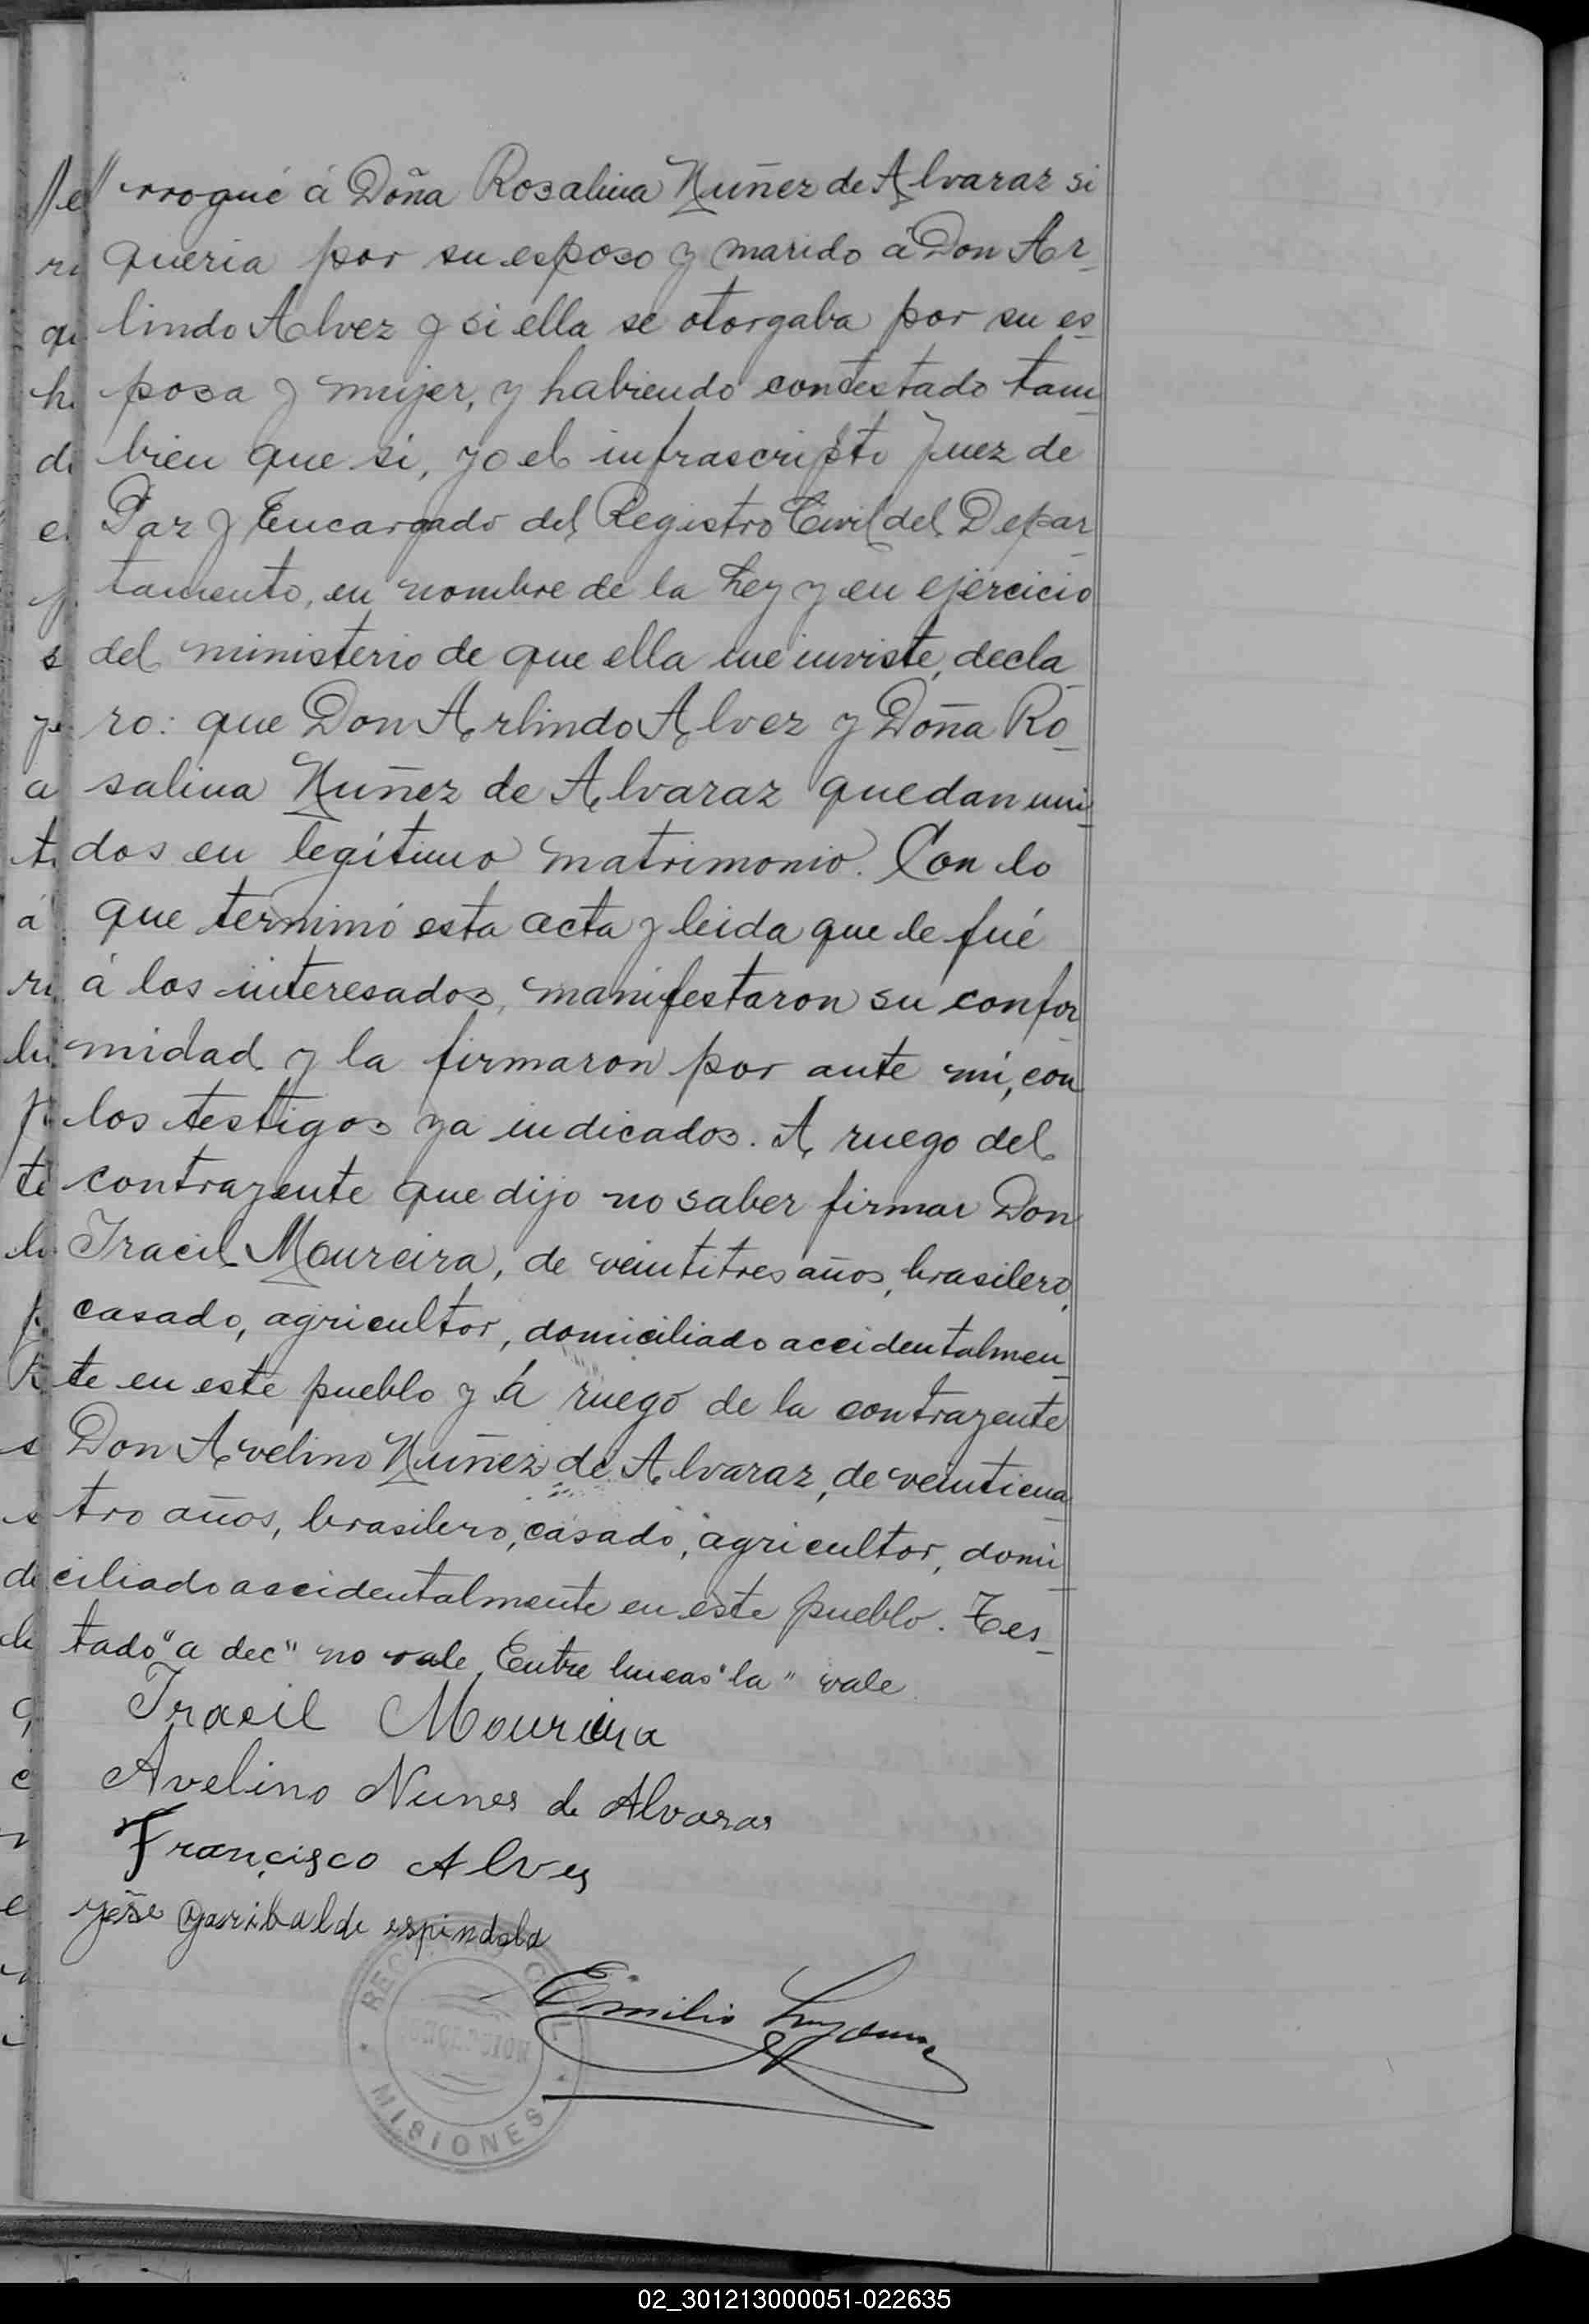 rrogué á Doña Rosalina Nuñez de Alvaraz si
queria por su esposo y marido á Don Ar-
lindo Alvez y si ella se otorgaba por su es-
posa y mujer, y habiendo contestado tam-
bien que si, yo el infrascripto Juez de
Paz y Encargado del Registro Civil del Depar-
tamento, en nombre de la Ley y en ejercicio
del ministerio de que ella me inviste, decla-
ro: que Don Arlindo Alvez y Doña Ro-
salina Nuñez de Alvaraz quedan uni-
dos en legítimo matrimonio. Con lo
que terminó esta acta y leida que le fué
á los interesados, manifestaron su confor-
midad y la firmaron por ante mi, con
los testigos ya indicados. A ruego del
contrayente que dijo no saber firmar Don
Iracil Moureira, de veintitres años, brasilero,
casado, agricultor, domiciliado accidentalmen-
te en este pueblo y á ruego de la contrayente
Don Avelino Nuñez de Alvaraz, de veinticua-
tro años, brasilero, casado, agricultor, domi-
ciliado accidentalmente en este pueblo. Tes-
tado "a dec" no vale. Entre lineas "la" vale
Iracil Moureira
Avelino Nunes de Alvaras
Francisco Alves
garibalde espindola
Emilio
MISIONES
02_301213000051-022635